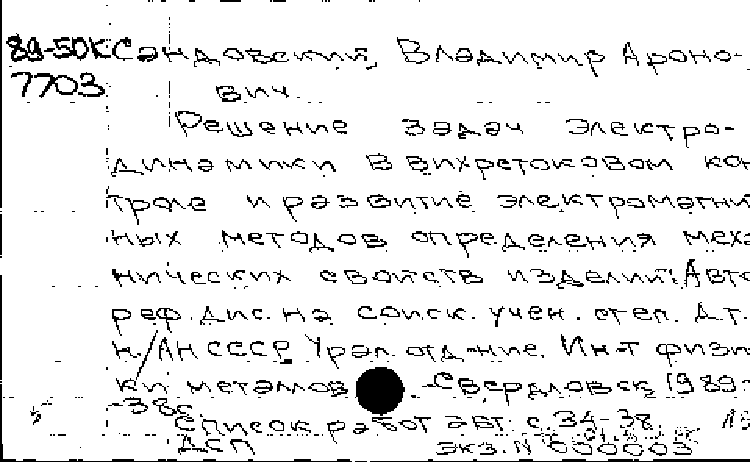 89-50К Сандовский, Владимир Ароно-
7703 вич.
Решение задач электро-
динамики в вихретоковом кон
троле и развитие электромагни
ных методов определения меха
нических свойств изделий: Авто
реф. дис. на соиск. учен. степ. д.т.
н./АН СССР Урал. отд-ние. Ин-т физи
ки металлов. -Свердловск, 1989-
-38с
Список работ авт. с. 34-38.
ДСП экз. N 000003